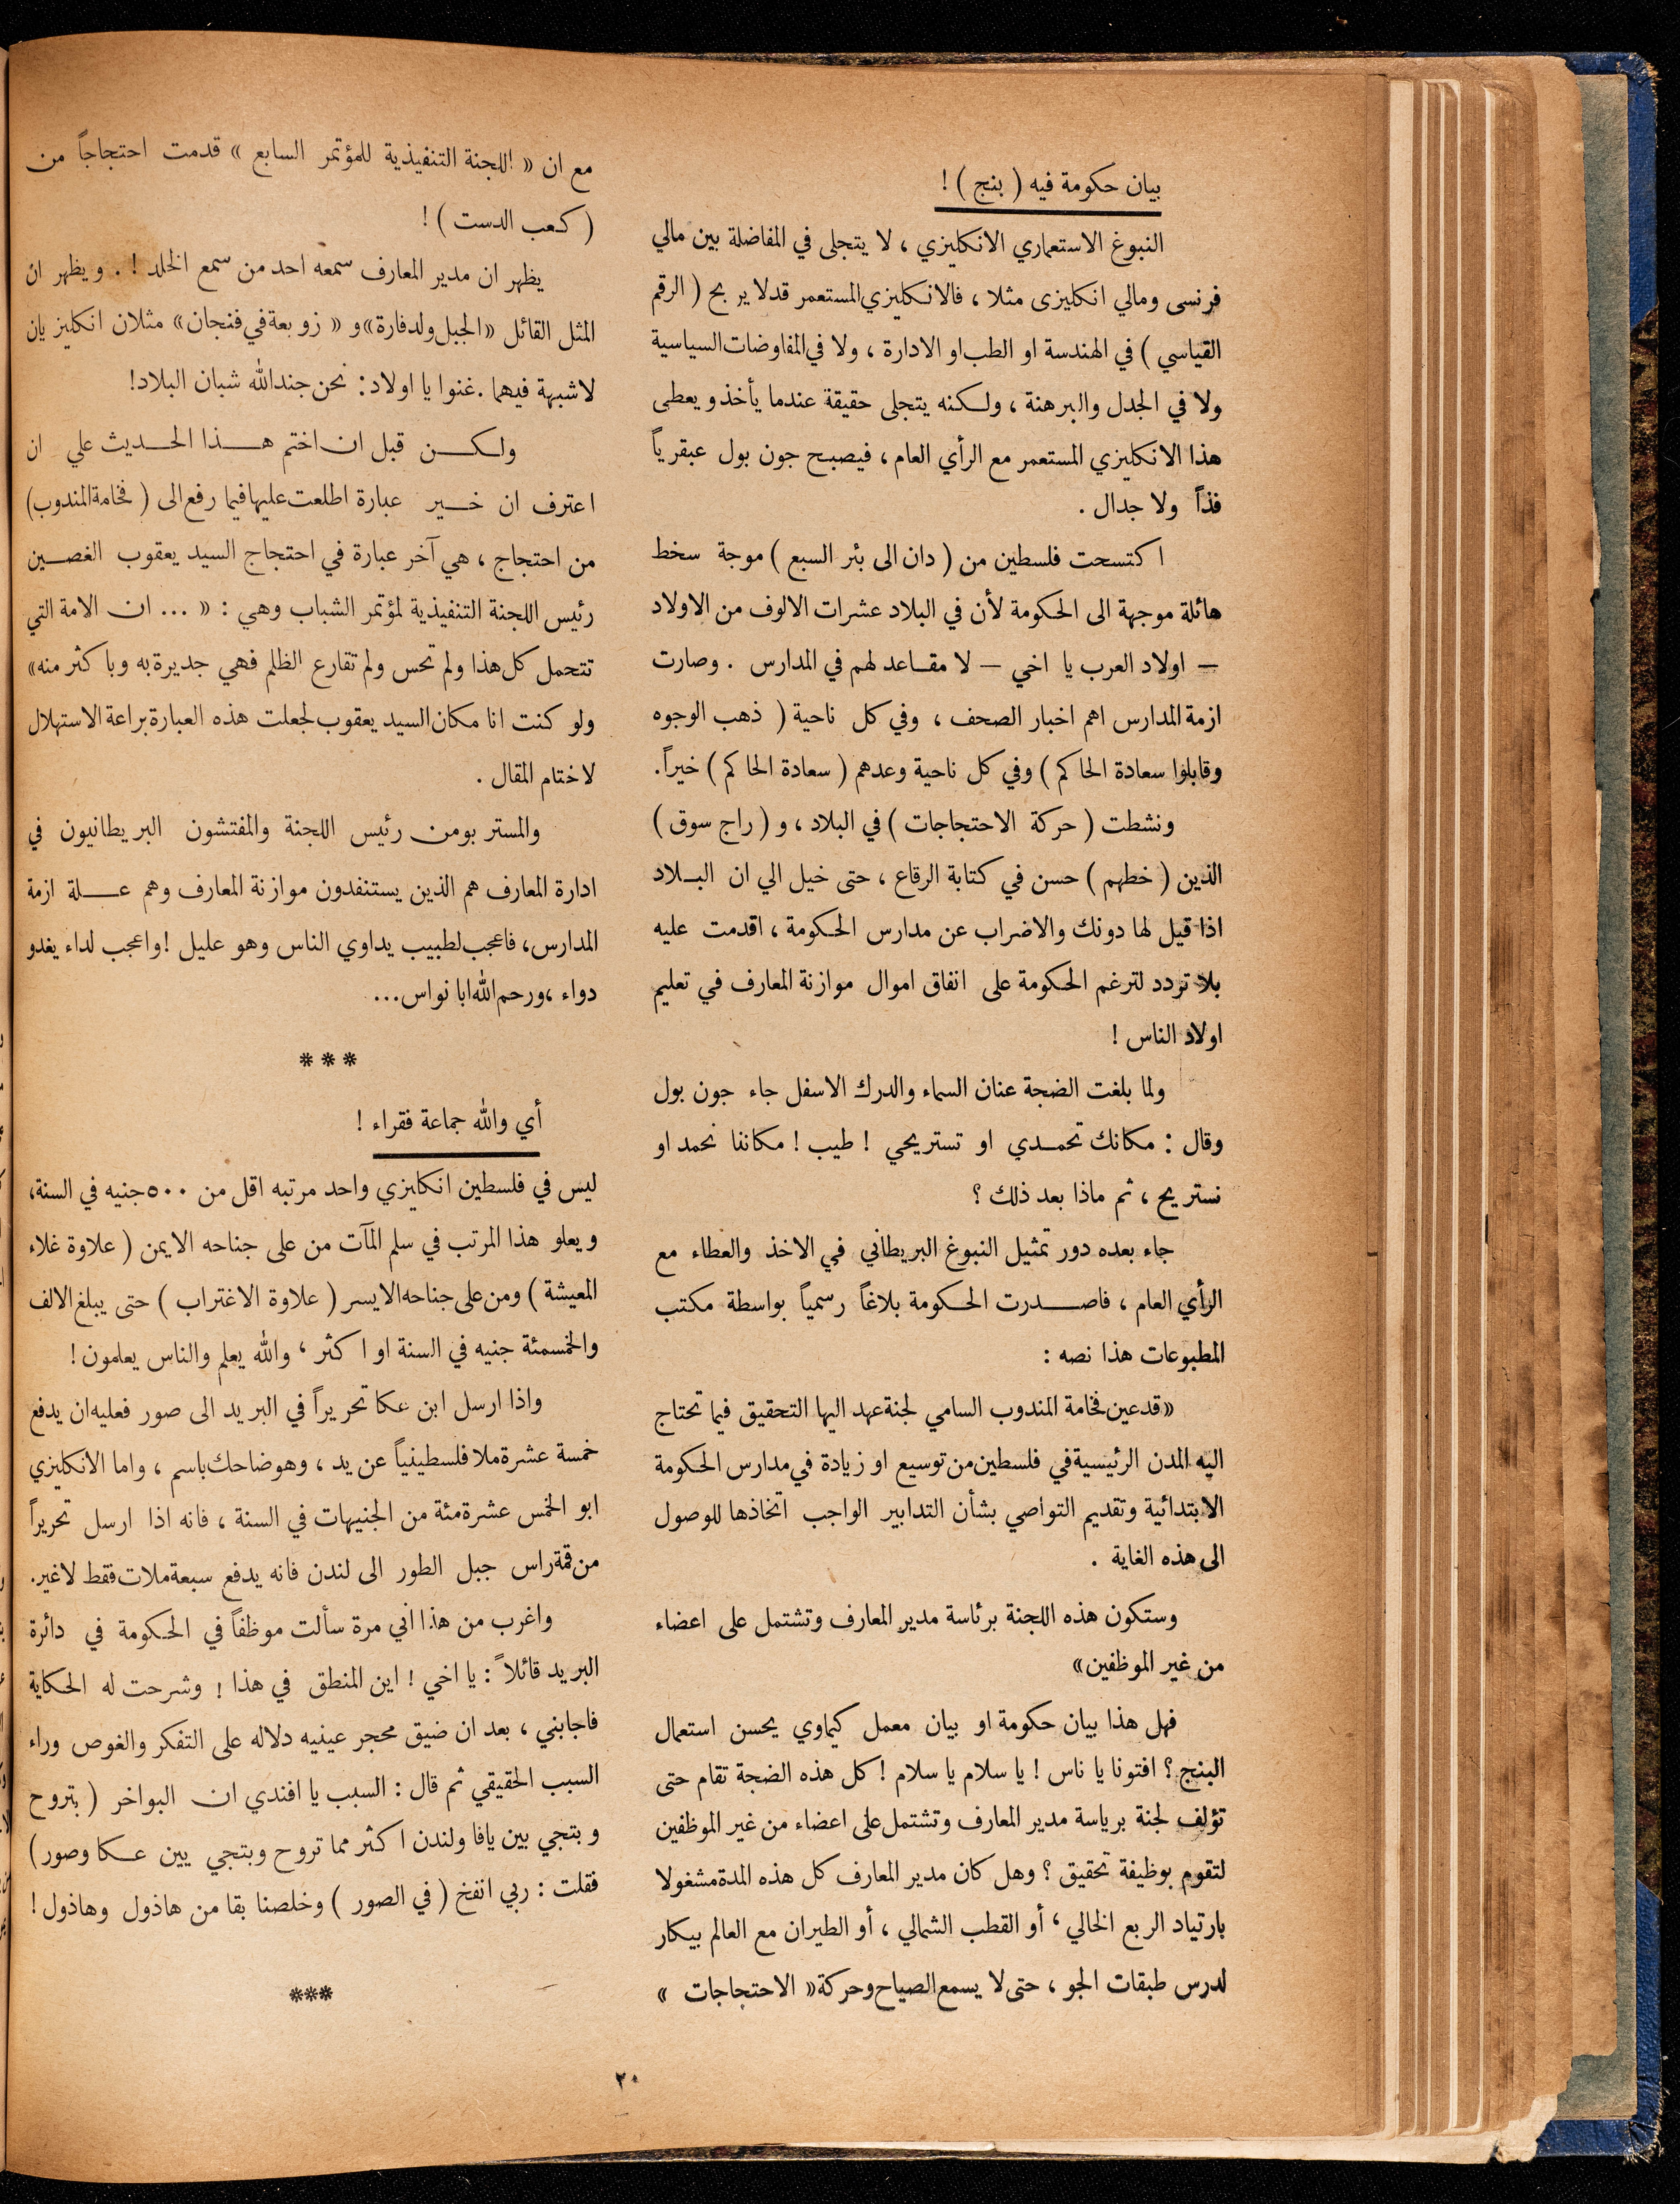 بيان حكومة فيه ( بنج ) !
النبوغ الاستعماري الانكليزي ، لا يتجلى في المفاضلة بين مالي
فرنسى ومالي انكليزى مثلا ، فالانكليزي المستعمر قد لا يربح ( الرقم
القياسي ) في الهندسة او الطب او الادارة ، ولا في المفاوضات السياسية
ولا في الجدل والبرهنة ، ولكنه يتجلى حقيقة عندما يأخذ ويعطى
هذا الانكليزي المستعمر مع الرأي العام ، فيصبح جون بول عبقرياً
فذاً ولا جدال .
اكتسحت فلسطين من ( دان الى بئر السبع ) موجة سخط
هائلة موجهة الى الحكومة لأن في البلاد عشرات الالوف من الاولاد
— اولاد العرب يا اخي — لا مقاعد لهم في المدارس . وصارت
ازمة المدارس اهم اخبار الصحف ، وفي كل ناحية ( ذهب الوجوه
وقابلوا سعادة الحاكم ) وفي كل ناحية وعدهم ( سعادة الحاكم ) خيراً .
ونشطت ( حركة الاحتجاجات ) في البلاد ، و ( راج سوق )
الذين ( خطهم ) حسن في كتابة الرقاع ، حتى خيل الي ان البلاد
اذا قيل لها دونك والاضراب عن مدارس الحكومة ، اقدمت عليه
بلا تردد لترغم الحكومة على انفاق اموال موازنة المعارف في تعليم
اولاد الناس !
ولما بلغت الضجة عنان السماء والدرك الاسفل جاء جون بول
وقال : مكانك تحمدي او تستريحي ! طيب ! مكاننا نحمد او
نستريح ، ثم ماذا بعد ذلك ؟
جاء بعده دور تمثيل النبوغ البريطاني في الاخذ والعطاء مع
الرأي العام ، فاصدرت الحكومة بلاغاً رسمياً بواسطة مكتب
المطبوعات هذا نصه :
« قد عين فخامة المندوب السامي لجنة عهد اليها التحقيق فيما تحتاج
اليه المدن الرئيسية في فلسطين من توسيع او زيادة في مدارس الحكومة
الابتدائية وتقديم التواصي بشأن التدابير الواجب اتخاذها للوصول
الى هذه الغاية .
وستكون هذه اللجنة برئاسة مدير المعارف وتشتمل على اعضاء
من غير الموظفين »
فهل هذا بيان حكومة او بيان معمل كيماوي يحسن استعمال
البنج ؟ افتونا يا ناس ! يا سلام يا سلام ! كل هذه الضجة تقام حتى
تؤلف لجنة برياسة مدير المعارف وتشتمل على اعضاء من غير الموظفين
لتقوم بوظيفة تحقيق ؟ وهل كان مدير المعارف كل هذه المدة مشغولا
بارتياد الربع الخالي ، أو القطب الشمالي ، أو الطيران مع العالم بيكار
لدرس طبقات الجو ، حتى لا يسمع الصياح وحركة « الاحتجاجات »
مع ان « اللجنة التنفيذية للمؤتمر السابع » قدمت احتجاجاً من
( كعب الدست ) !
يظهر ان مدير المعارف سمعه احد من سمع الخلد ! . ويظهر ان
المثل القائل « الجبل ولد فارة » و « زوبعة في فنجان » مثلان انكليزيان
لا شبهة فيهما . غنوا يا اولاد : نحن جند الله شبان البلاد !
ولكن قبل ان اختم هذا الحديث علي ان
اعترف ان خير عبارة اطلعت عليها فيما رفع الى ( فخامة المندوب )
من احتجاج ، هي آخر عبارة في احتجاج السيد يعقوب الغصين
رئيس اللجنة التنفيذية لمؤتمر الشباب وهي : « ... ان الامة التي
تتحمل كل هذا ولم تحس ولم تقارع الظلم فهي جديرة به وباكثر منه »
ولو كنت انا مكان السيد يعقوب لجعلت هذه العبارة براعة الاستهلال
لا ختام المقال .
والمستر بومن رئيس اللجنة والمفتشون البريطانيون في
ادارة المعارف هم الذين يستنفدون موازنة المعارف وهم علة ازمة
المدارس ، فاعجب لطبيب يداوي الناس وهو عليل ! واعجب لداء يغدو
دواء ، ورحم الله ابا نواس ...
***
أي والله جماعة فقراء !
ليس في فلسطين انكليزي واحد مرتبه اقل من ٥٠٠ جنيه في السنة ،
ويعلو هذا المرتب في سلم المآت من على جناحه الايمن ( علاوة غلاء
المعيشة ) ومن على جناحه الايسر ( علاوة الاغتراب ) حتى يبلغ الالف
والخمسمئة جنيه في السنة او اكثر ، والله يعلم والناس يعلمون !
واذا ارسل ابن عكا تحريراً في البريد الى صور فعليه ان يدفع
خمسة عشرة ملا فلسطينياً عن يد ، وهو ضاحك باسم ، واما الانكليزي
ابو الخمس عشرة مئة من الجنيهات في السنة ، فانه اذا ارسل تحريراً
من قمة راس جبل الطور الى لندن فانه يدفع سبعة ملات فقط لا غير .
واغرب من هذا اني مرة سألت موظفاً في الحكومة في دائرة
البريد قائلاً : يا اخي ! اين المنطق في هذا ! وشرحت له الحكاية
فاجابني ، بعد ان ضيق محجر عينيه دلاله على التفكر والغوص وراء
السبب الحقيقي ثم قال : السبب يا افندي ان البواخر ( بتروح
وبتجي بين يافا ولندن اكثر مما تروح وبتجي بين عكا وصور )
فقلت : ربي انفخ ( في الصور ) وخلصنا بقا من هاذول وهاذول !
***
٢٠